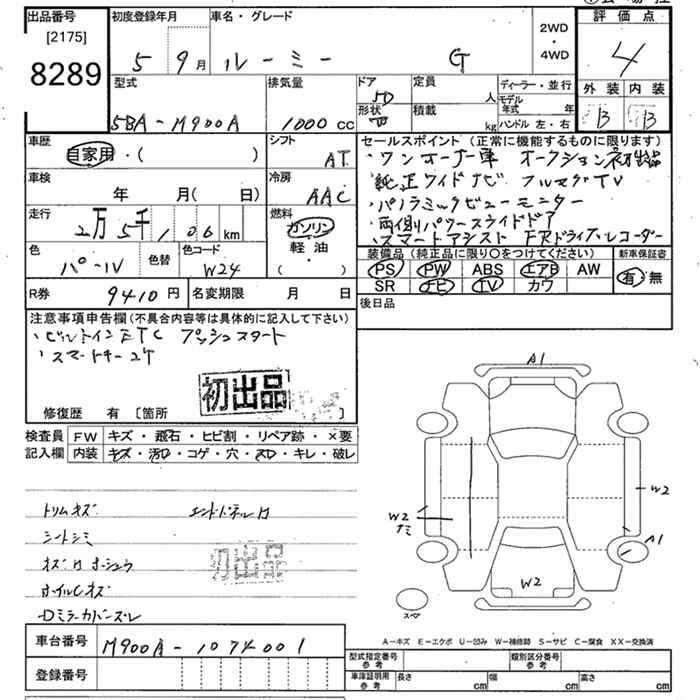 出品番号 初度登録年月 車名・グレード 2WD・4WD 評価点
[2175]
8289 5 9月 ルーミー G 4
型式 排気量 ドア形状 5D 定員 人 ディーラー・並行 外装 内装
5BA-M900A 1000cc 積載 kg モデル年式 年 ハンドル 左・右 B B
車歴 シフト セールスポイント(正常に機能するものに限ります)
自家用・( ) AT ・ワンオーナー車 オークション初出品
車検 冷房 ・純正ワイドナビ フルセグTV
年 月(日) AAC ・パノラミックビューモニター
走行 燃料 ・両側パワースライドドア
2万5千106km ガソリン ・スマートアシスト FRドライブレコーダー
色 色替 色コード 軽油 装備品(純正品に限り〇をつけてください) 新車保証書
パール W24 ・( ) PS PW ABS エアB AW 有・無
SR ナビ TV カワ
R券 9410円 名変期限 月 日 後日品
注意事項申告欄(不具合内容等は具体的に記入して下さい)
・ビルトインETC プッシュスタート
・スマートキー2ケ
初出品
修復歴 有 〔箇所 〕
検査員 FW キズ・飛石・ヒビ割・リペア跡・×要
記入欄 内装 キズ・汚レ・コゲ・穴・スレ・キレ・破レ
A1
W2
W2
A1
W2
スペア
トリムキズ
シートシミ
初出品
ホイルCキズ
Dミラーカバーズレ
A-キズ E-エクボ U-凹み W-補修跡 S-サビ C-腐食 XX-交換済
車台番号 M900A-1074001
登録番号
型式指定番号 参考 類別区分番号 参考
車庫証明用 参考 長さ cm 幅 cm 高さ cm